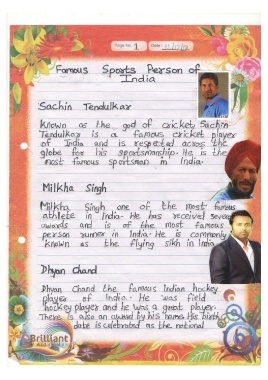 Page No. 1 Date
Famous Sports Person of
India
Sachin Tendulkar
Known as the god of cricket, Sachin
Tendulkar is a famous cricket player
of India and is respected across the
globe for his sportsmanship. He is the
most famous sportsman in India.
Milkha Singh
Milkha Singh one of the most famous
athlete in India. He has received several
awards and is of the most famous
person runner in India. He is commonly
known as the flying sikh in India
Dhyan Chand
Dhyan Chand the famous Indian hockey
player of India. He was field
hockey player and he was a great player.
There is also an award by his name. His birth
date is celebrated as the national
Brilliant